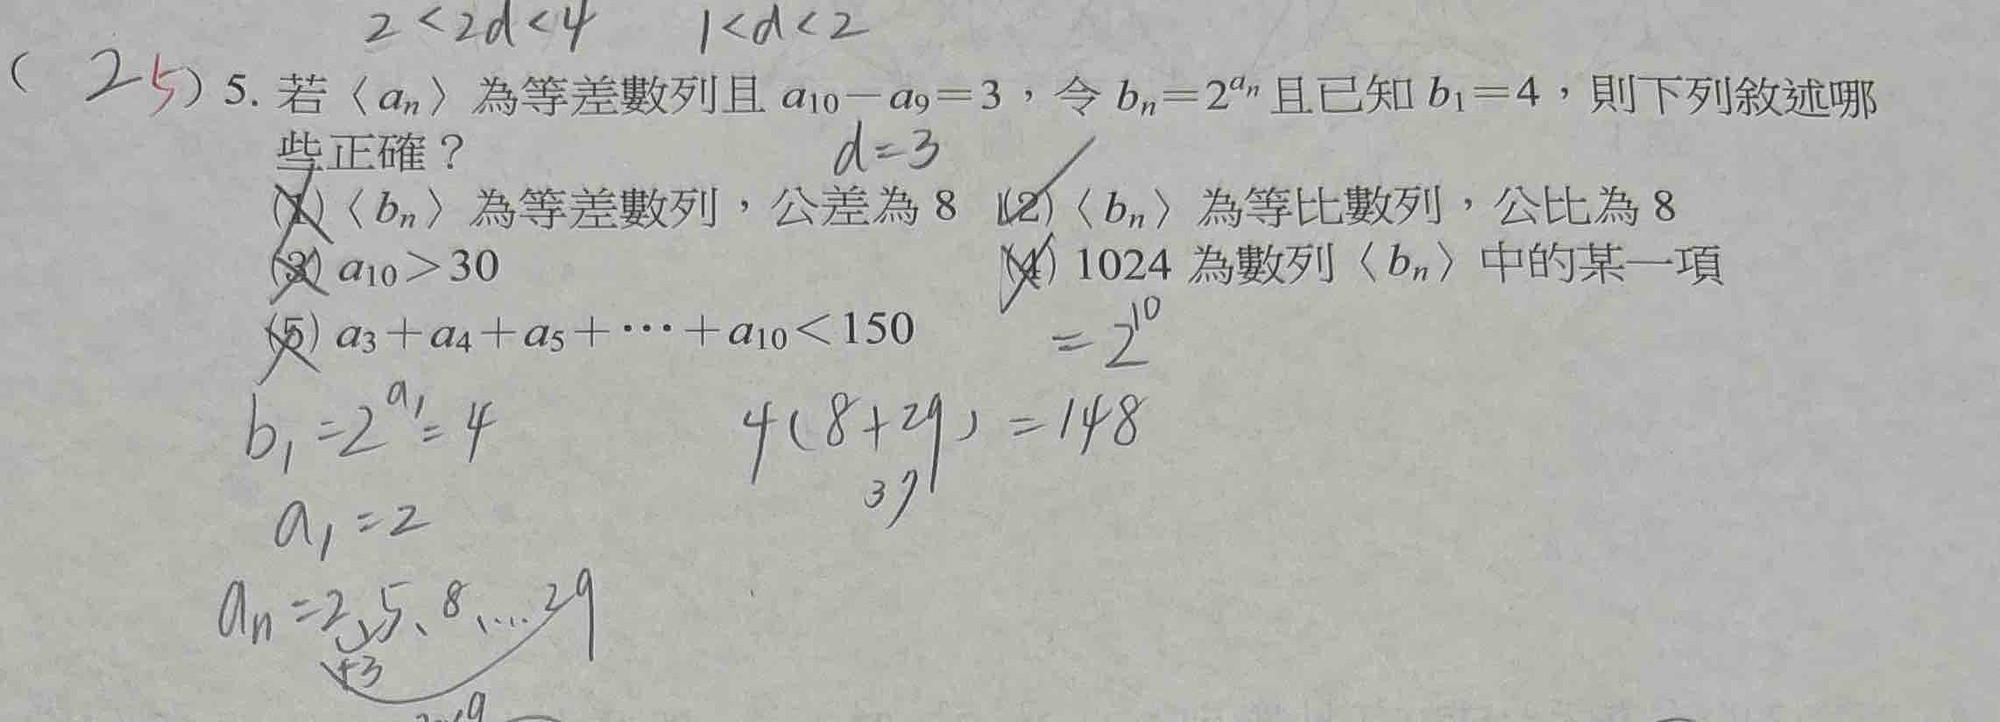 2<2d<4 1<d<2
( 25 ) 5. 若〈aₙ〉為等差數列且 a₁₀−a₉=3，令 bₙ=2^{aₙ} 且已知 b₁=4，則下列敘述哪
些正確？ d=3
(1)〈bₙ〉為等差數列，公差為 8 (2)〈bₙ〉為等比數列，公比為 8
(3) a₁₀>30 (4) 1024 為數列〈bₙ〉中的某一項
(5) a₃+a₄+a₅+⋯+a₁₀<150 =2^{10}
b₁=2^{a₁}=4 4(8+29)=148
37
a₁=2
aₙ=2、5、8、…29
+3